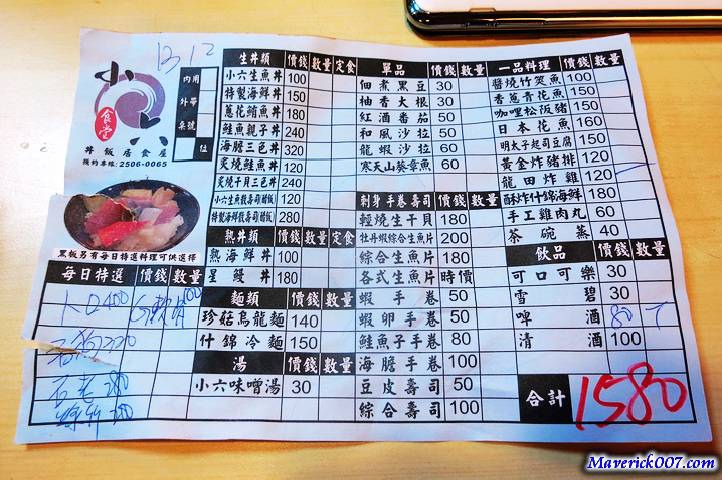 13 12
小六
食堂
丼飯居食屋
預約專線:2506-0065
內用
外帶
桌號
位
黑板另有每日特選料理可供選擇
每日特選 價錢 數量
生丼類 價錢 數量 定食
小六生魚丼 100
特製海鮮丼 150
蔥花鮪魚丼 180
鮭魚親子丼 240
海膽三色丼 320
炙燒鮭魚丼 120
炙燒干貝三色丼 240
小六生魚散壽司(醋飯) 120
特製海鮮散壽司(醋飯) 280
熟丼類 價錢 數量 定食
熟海鮮丼 100
星鰻丼 180
麵類 價錢 數量
珍菇烏龍麵 140
什錦冷麵 150
湯 價錢 數量
小六味噌湯 30
單品 價錢 數量
佃煮黑豆 30
柚香大根 30
紅酒番茄 50
和風沙拉 50
龍蝦沙拉 60
寒天山葵章魚 60
刺身手卷壽司 價錢 數量
輕燒生干貝 180
牡丹蝦綜合生魚片 200
綜合生魚片 180
各式生魚片 時價
蝦手卷 50
蝦卵手卷 50
鮭魚子手卷 80
海膽手卷 100
豆皮壽司 50
綜合壽司 100
一品料理 價錢 數量
醬燒竹筴魚 100
香蔥青花魚 150
咖哩松阪豬 150
日本花魚 160
明太子起司豆腐 150
黃金炸豬排 120
龍田炸雞 120
酥炸什錦海鮮 180
手工雞肉丸 60
茶碗蒸 40
飲品 價錢 數量
可口可樂 30
雪碧 30
啤酒 80
清酒 100
合計 1580
Maverick007.com